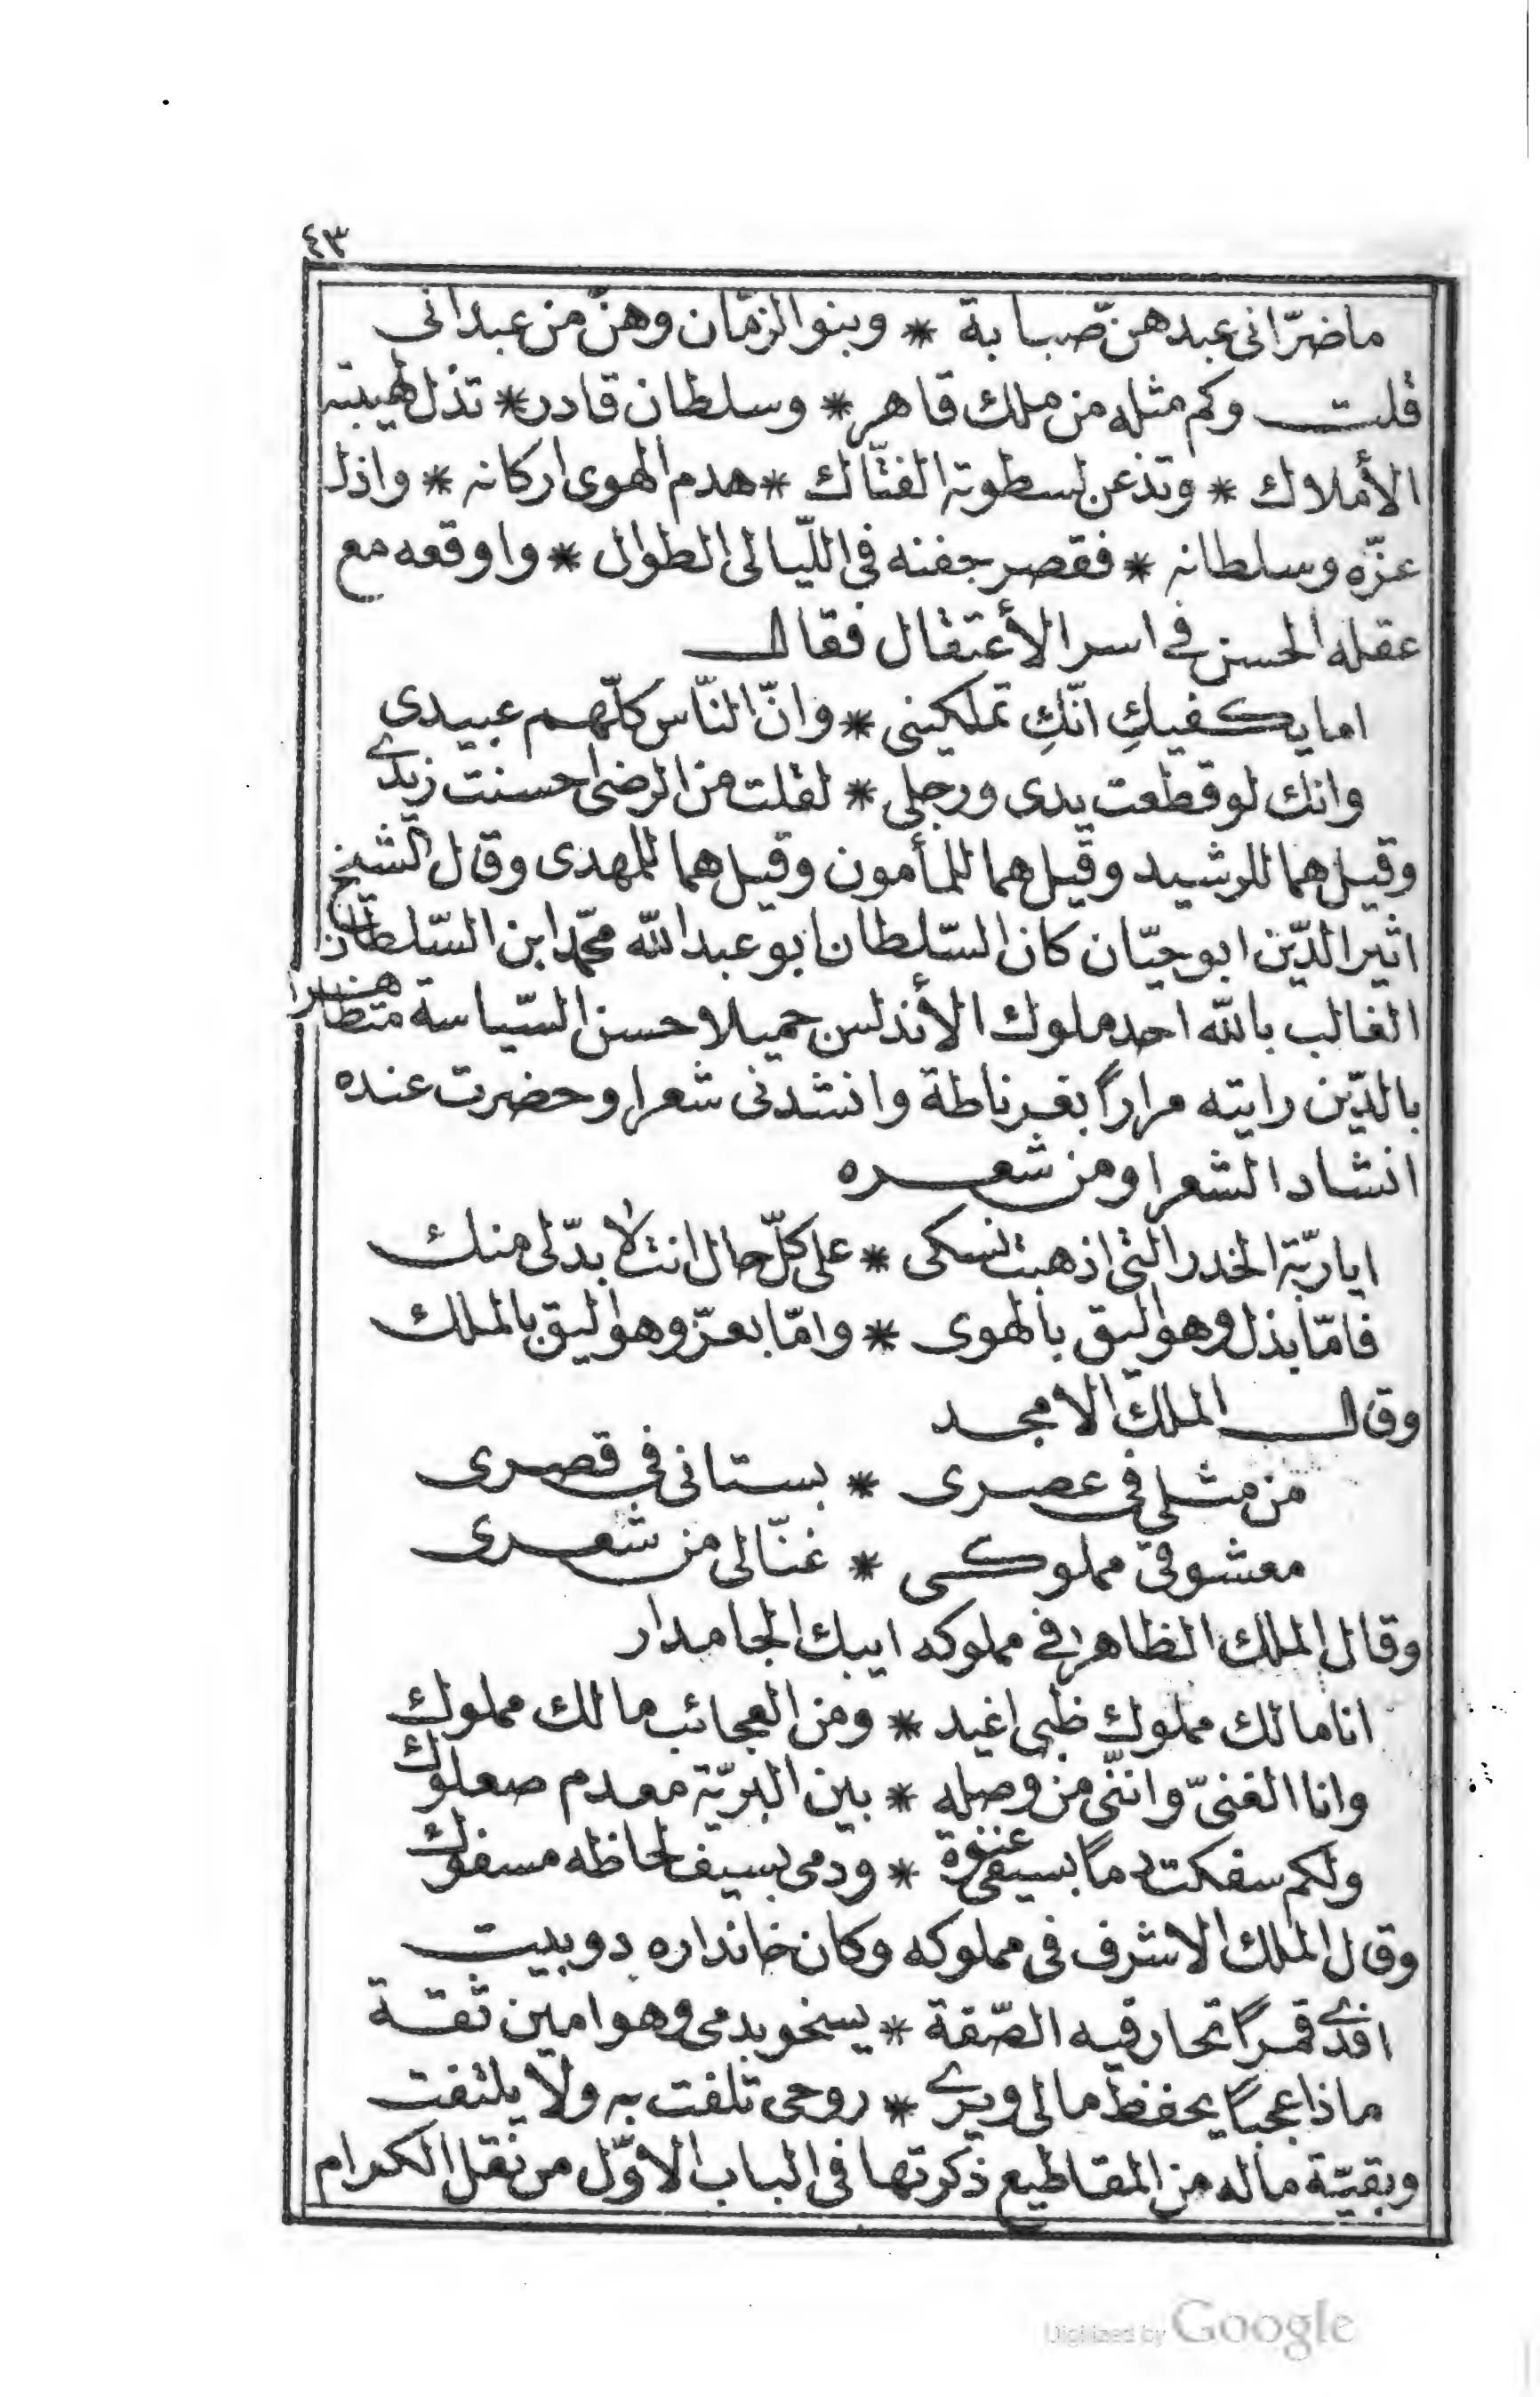 ٤٣
ماضرّانى عبدهنّ صبابة * وبنوالزمّان وهنّ من عبدانى
قلت وكم مثله من ملك قاهر * وسلطان قادر * تذل لهيبته
الأملاك * وتذعن لسطوته الفتّاك * هدم الهوى اركانه * واذل
عزّه وسلطانه * فقصر جفنه فى اللّيالى الطوال * واوقعه مع
عقله الحسن فى اسر الأعتقال فقال
امايكفيكِ انّكِ تملكينى * وانّ النّاس كلّهم عبيدى
وانك لو قطعت يدى ورجلى * لقلت من الرضى احسنت زيدى
وقيل هما للرشيد وقيل هما للمأمون وقيل هما للمهدى وقال الشيخ
اثير الدّين ابو حيّان كان السّلطان ابو عبدالله محمّد ابن السّلطان
الغالب بالله احد ملوك الأندلس جميلا حسن السّياسة متظاهرا
بالدّين رايته مراراً بغرناطة وانشدنى شعرا وحضرت عنده
انشاد الشعرا ومن شعره
اياربّة الخدر التى اذهبت نسكى * على كلّ حال انت لا بدّ لى منك
فامّا بذل وهو اليق بالهوى * وامّا بعزّ وهو اليق بالملك
وقال الملك الامجد
من مثلى فى عصرى * بستانى فى قصرى
معشوقى مملوكى * غنّالى من شعرى
وقال الملك الظاهر فى مملوكه ايبك الجامدار
انا مالك مملوك ظبى اغيد * ومن العجائب مالك مملوك
وانا الغنىّ واننّى من وصله * بين البريّة معدم صعلوك
ولكم سفكت دماً بسيفى عنوة * ودمى بسيف لحاظه مسفوك
وقال الملك الاشرف فى مملوكه وكان خانداره دوبيت
افدى قمراً تحار فيه الصّفة * يسخو بدمى وهو امين ثقة
ماذا عجباً يحفظ مالى ويرى * روحى تلفت به ولا يلتفت
وبقيّة ماله من المقاطيع ذكرتها فى الباب الاوّل من نقل الكرام
Digitized by Google